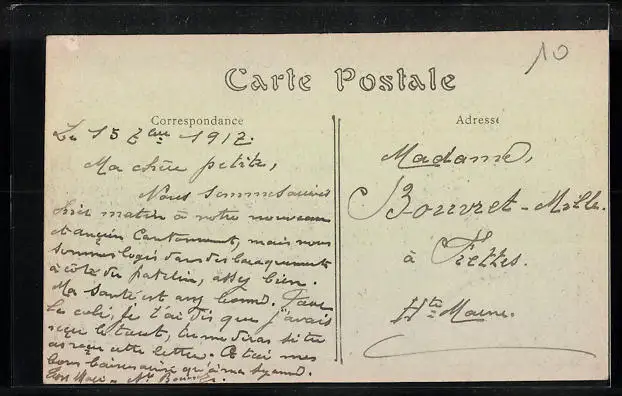 10
Carte Postale
Correspondance
Le 15 1912.
Ma chère petite,
Nous sommes arrivés
hier matin à notre nouveau
et ancien Cantonnement, mais nous
sommes logés dans des baraquements
à côté du patelin, assez bien.
Ma santé est assez bonne. Pour
le colis, je t'ai dis que j'avais
reçu le tout, tu me diras si tu
as reçu cette lettre. A toi mes
bons baisers ainsi qu'à ma
Ton
Adresse
Madame,
Bouvret-Mille.
à Frettes.
Hte Marne.